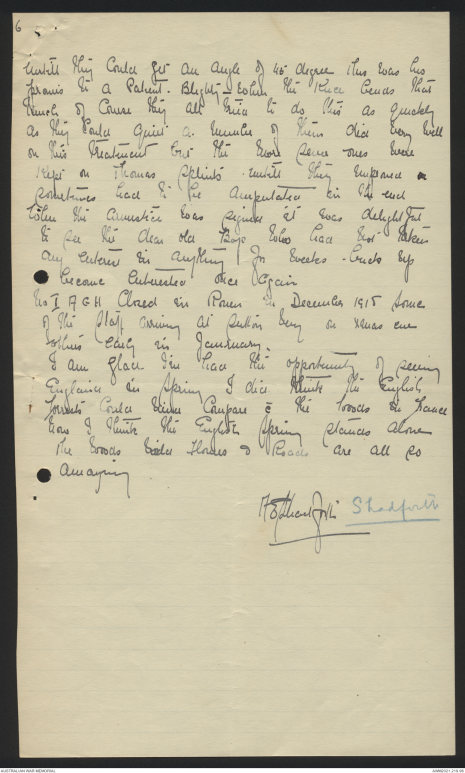 6
untill they could get an angle of 45 degree this was his
promis to a Patient. Blighty when the Knee bends that
much of course they all tried to do this as quickly
as they could quiet a number of them did very well
on this treatment but the more severe ones were
kept on Thomas splints untill they improved or
sometimes had to be amputated in the end
When the Armistice was signed it was delightful
to see the dear old Boys who had not taken
any interest in anything for weeks - buck up
become interested once again
No I AGH Closed in Rouen in December 1918 some
of the staff arriving at Sutton Veny on Xmas eve
others early in January.
I am glad I've had the opportunity of seeing
England in Spring I did think the English
forests could never compare c the woods in France
Now I think the English Spring stands alone
The woods Flowers & Roads are all so
amazing
Shadforth
AUSTRALIAN WAR MEMORIAL